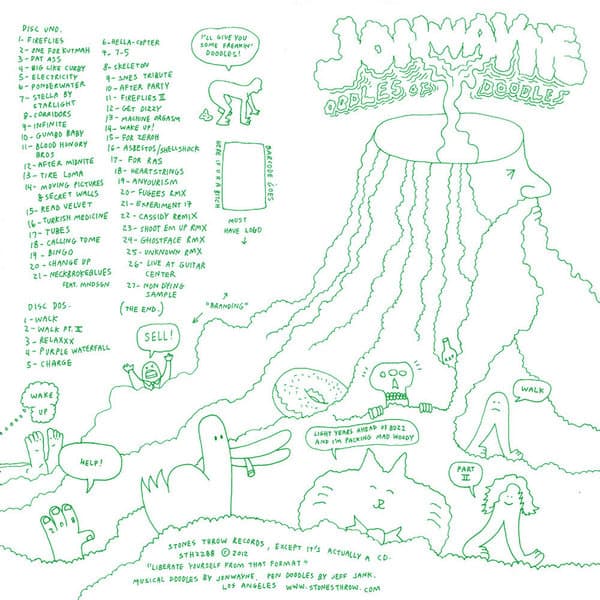 DISC UNO.
1- FIREFLIES
2- ONE FOR KUTMAH
3- DAT ASS
4- BIG LIKE CUBBY
5- ELECTRICITY
6- POWDERWATER
7- STELLA BY
STARLIGHT
8- CORRIDORS
9- INFINITE
10- GUMBO BABY
11- BLOOD HUNGRY
BROS
12- AFTER MIDNITE
13- TIRE LOMA
14- MOVING PICTURES
& SECRET WALLS
15- READ VELVET
16- TURKISH MEDICINE
17- TUBES
18- CALLING TOME
19- BINGO
20- CHANGE UP
21- NECKBROKEBLUES
FEAT. MNDSGN
DISC DOS.
1- WALK
2- WALK PT. II
3- RELAXXX
4- PURPLE WATERFALL
5- CHARGE
6- HELLA-COPTER
7- 7-5
8- SKELETON
9- SNES TRIBUTE
10- AFTER PARTY
11- FIREFLIES II
12- GET DIZZY
13- MACHINE ORGASM
14- WAKE UP!
15- FOR ZEROH
16- ASBESTOS/SHELLSHOCK
17- FOR RAS
18- HEARTSTRINGS
19- ANYOURISM
20- FUGEES RMX
21- EXPERIMENT 17
22- CASSIDY REMIX
23- SHOOT EM UP RMX
24- GHOSTFACE RMX
25- UNKNOWN RMX
26- LIVE AT GUITAR
CENTER
27- NON DYING
SAMPLE
(THE END.)
I'LL GIVE YOU
SOME FREAKIN'
DOODLES!
BARCODE GOES
HERE IF U R A BITCH
MUST
HAVE LOGO
"BRANDING"
JONWAYNE
OODLES OF DOODLES
SELL!
WAKE
UP
HELP!
LIGHT YEARS AHEAD OF BUZZ
AND I'M PACKING MAD WOODY
WALK
PART
II
STONES THROW RECORDS, EXCEPT IT'S ACTUALLY A CD.
STH2288 © 2012
"LIBERATE YOURSELF FROM THAT FORMAT."
MUSICAL DOODLES BY JONWAYNE. PEN DOODLES BY JEFF JANK.
LOS ANGELES WWW.STONESTHROW.COM